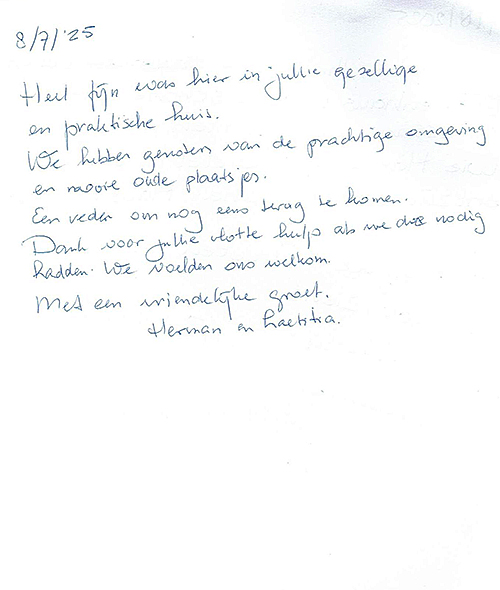 8/7/'25
Heel fijn was hier in jullie gezellige
en praktische huis.
We hebben genoten van de prachtige omgeving
en mooie oude plaatsjes.
Een reden om nog eens terug te komen.
Dank voor jullie vlotte hulp als we die nodig
hadden. We voelden ons welkom.
Met een vriendelijke groet.
Herman en Laetitia.